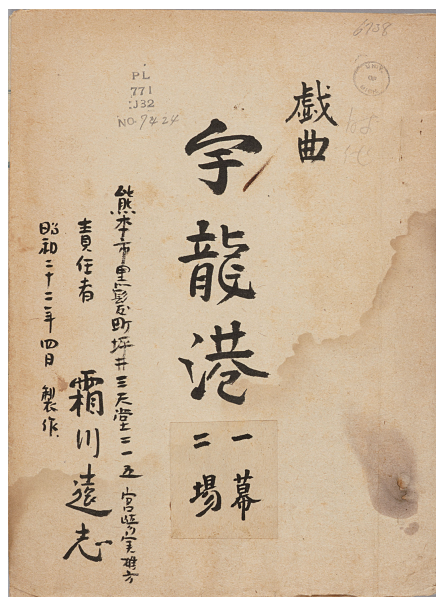 6708
PL
771
.J32
NO. 7424
戯曲
宇龍港
一幕
二場
熊本市黒髪町坪井三天堂二一五
責任者 霜川遠志
昭和二十二年四月 製作